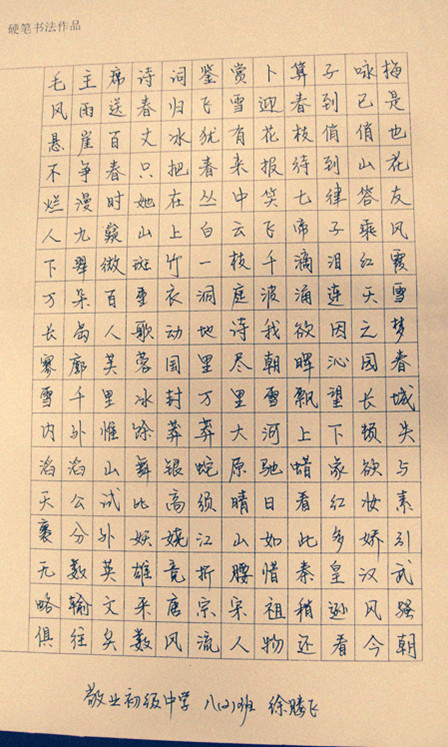 硬笔书法作品
毛主席诗词鉴赏卜算子咏梅
风雨送春归飞雪迎春到已是
悬崖百丈冰犹有花枝俏俏也
不争春只把春来报待到山花
烂漫时她在丛中笑七律答友
人九嶷山上白云飞帝子乘风
下翠微斑竹一枝千滴泪红霞
万朵百重衣洞庭波涌连天雪
长岛人歌动地诗我欲因之梦
寥廓芙蓉国里尽朝晖沁园春
雪千里冰封万里雪飘望长城
内外惟馀莽莽大河上下顿失
滔滔山舞银蛇原驰蜡象欲与
天公试比高须晴日看红妆素
裹分外妖娆江山如此多娇引
无数英雄竞折腰惜秦皇汉武
略输文采唐宗宋祖稍逊风骚
俱往矣数风流人物还看今朝
敬业初级中学 八(2)班 徐腾飞